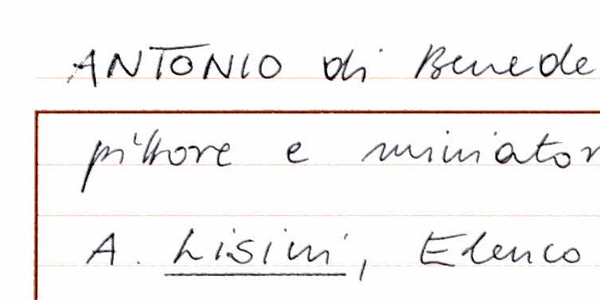 ANTONIO di Benede
pittore e miniator
A. Lisini, Elenco